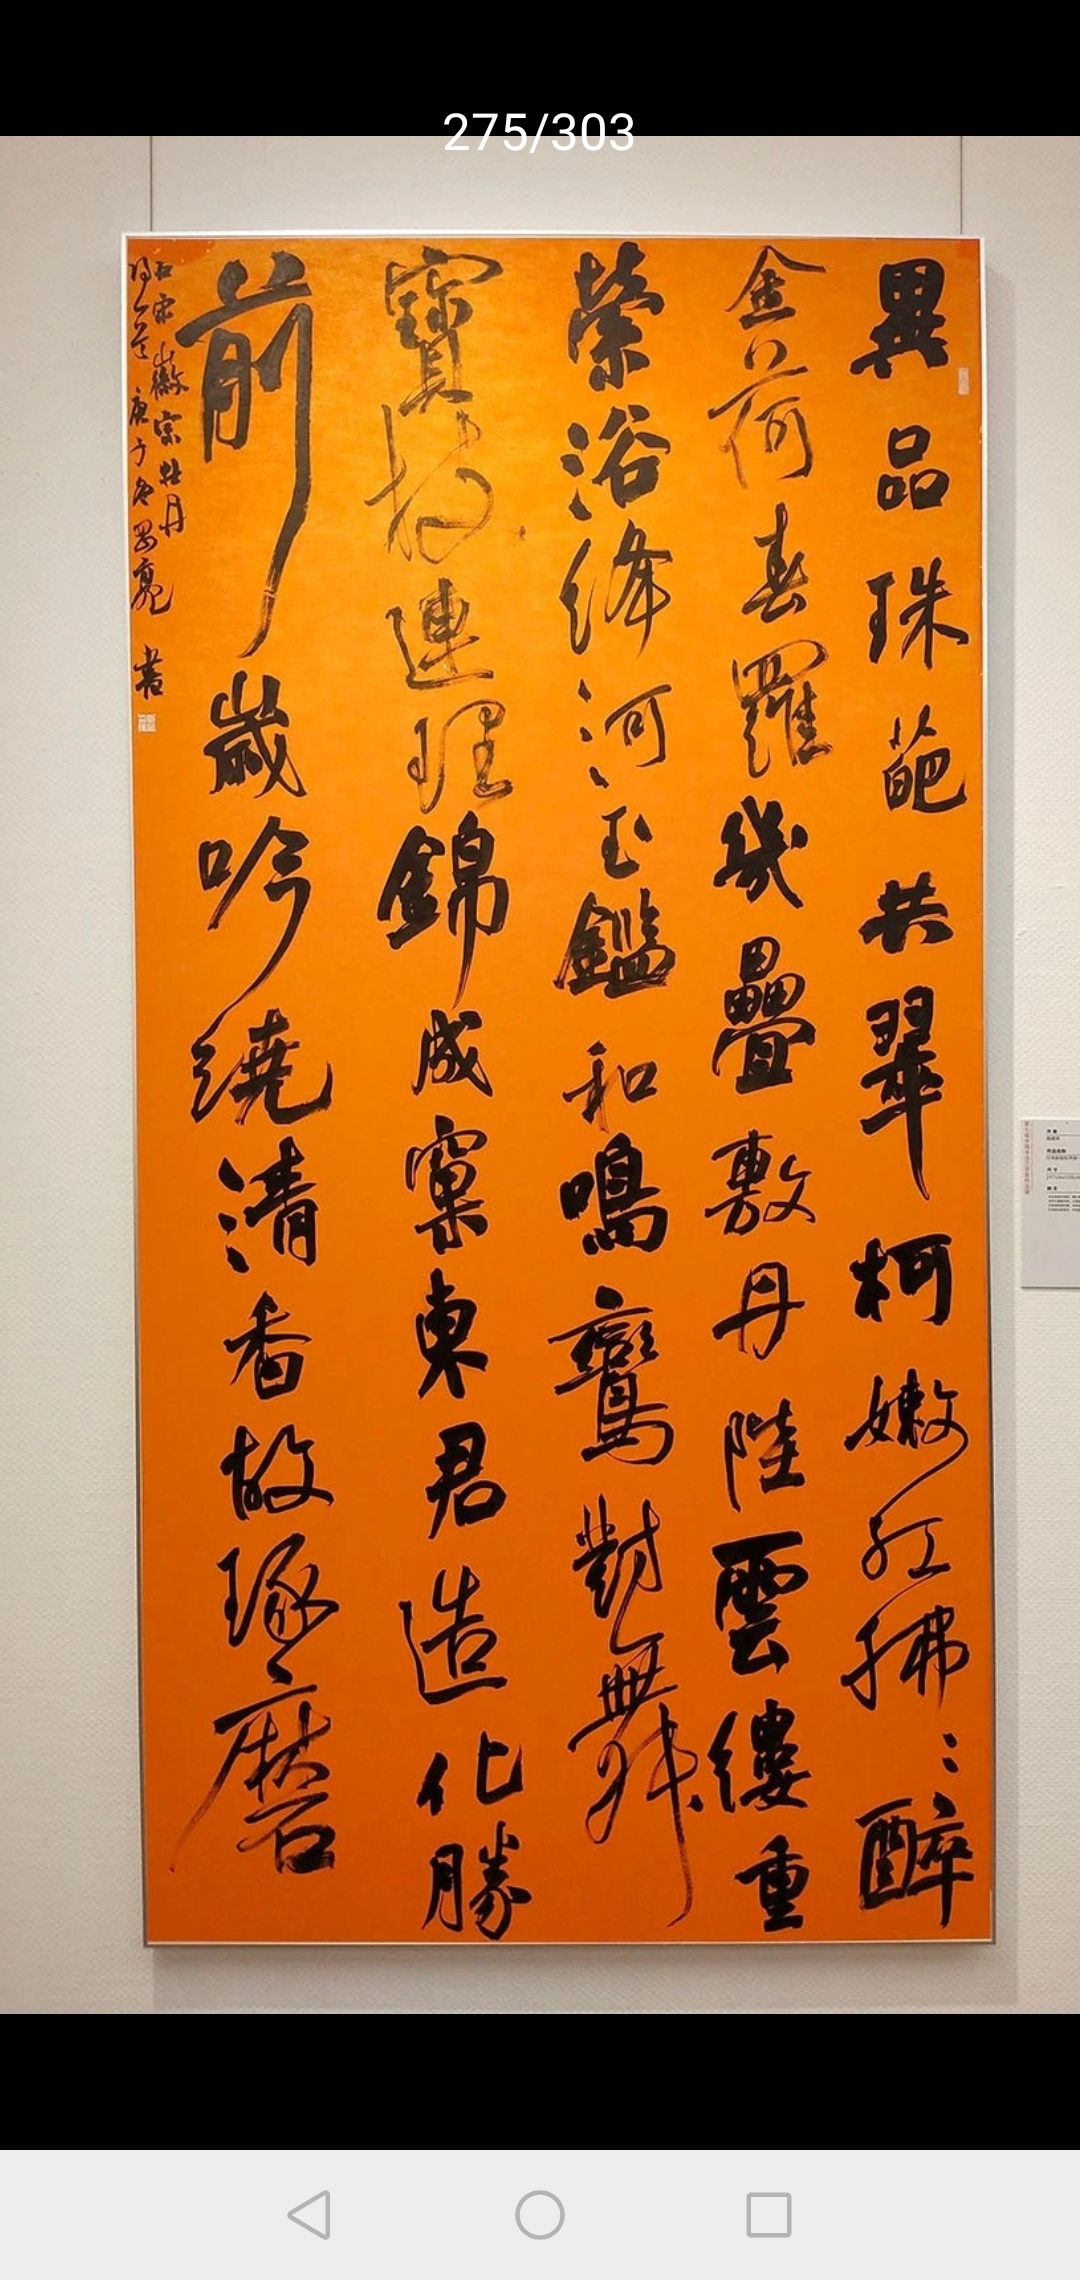 275/303
異品珠葩共翠柯嫩紅拂〻醉
金荷春羅幾疊敷丹陛雲縷重
縈浴絳河玉鑑和鳴鸞對舞
寶枝連理錦成窠東君造化勝
前歲吟繞清香故琢磨
右宋徽宗牡丹
庚子冬 亮書